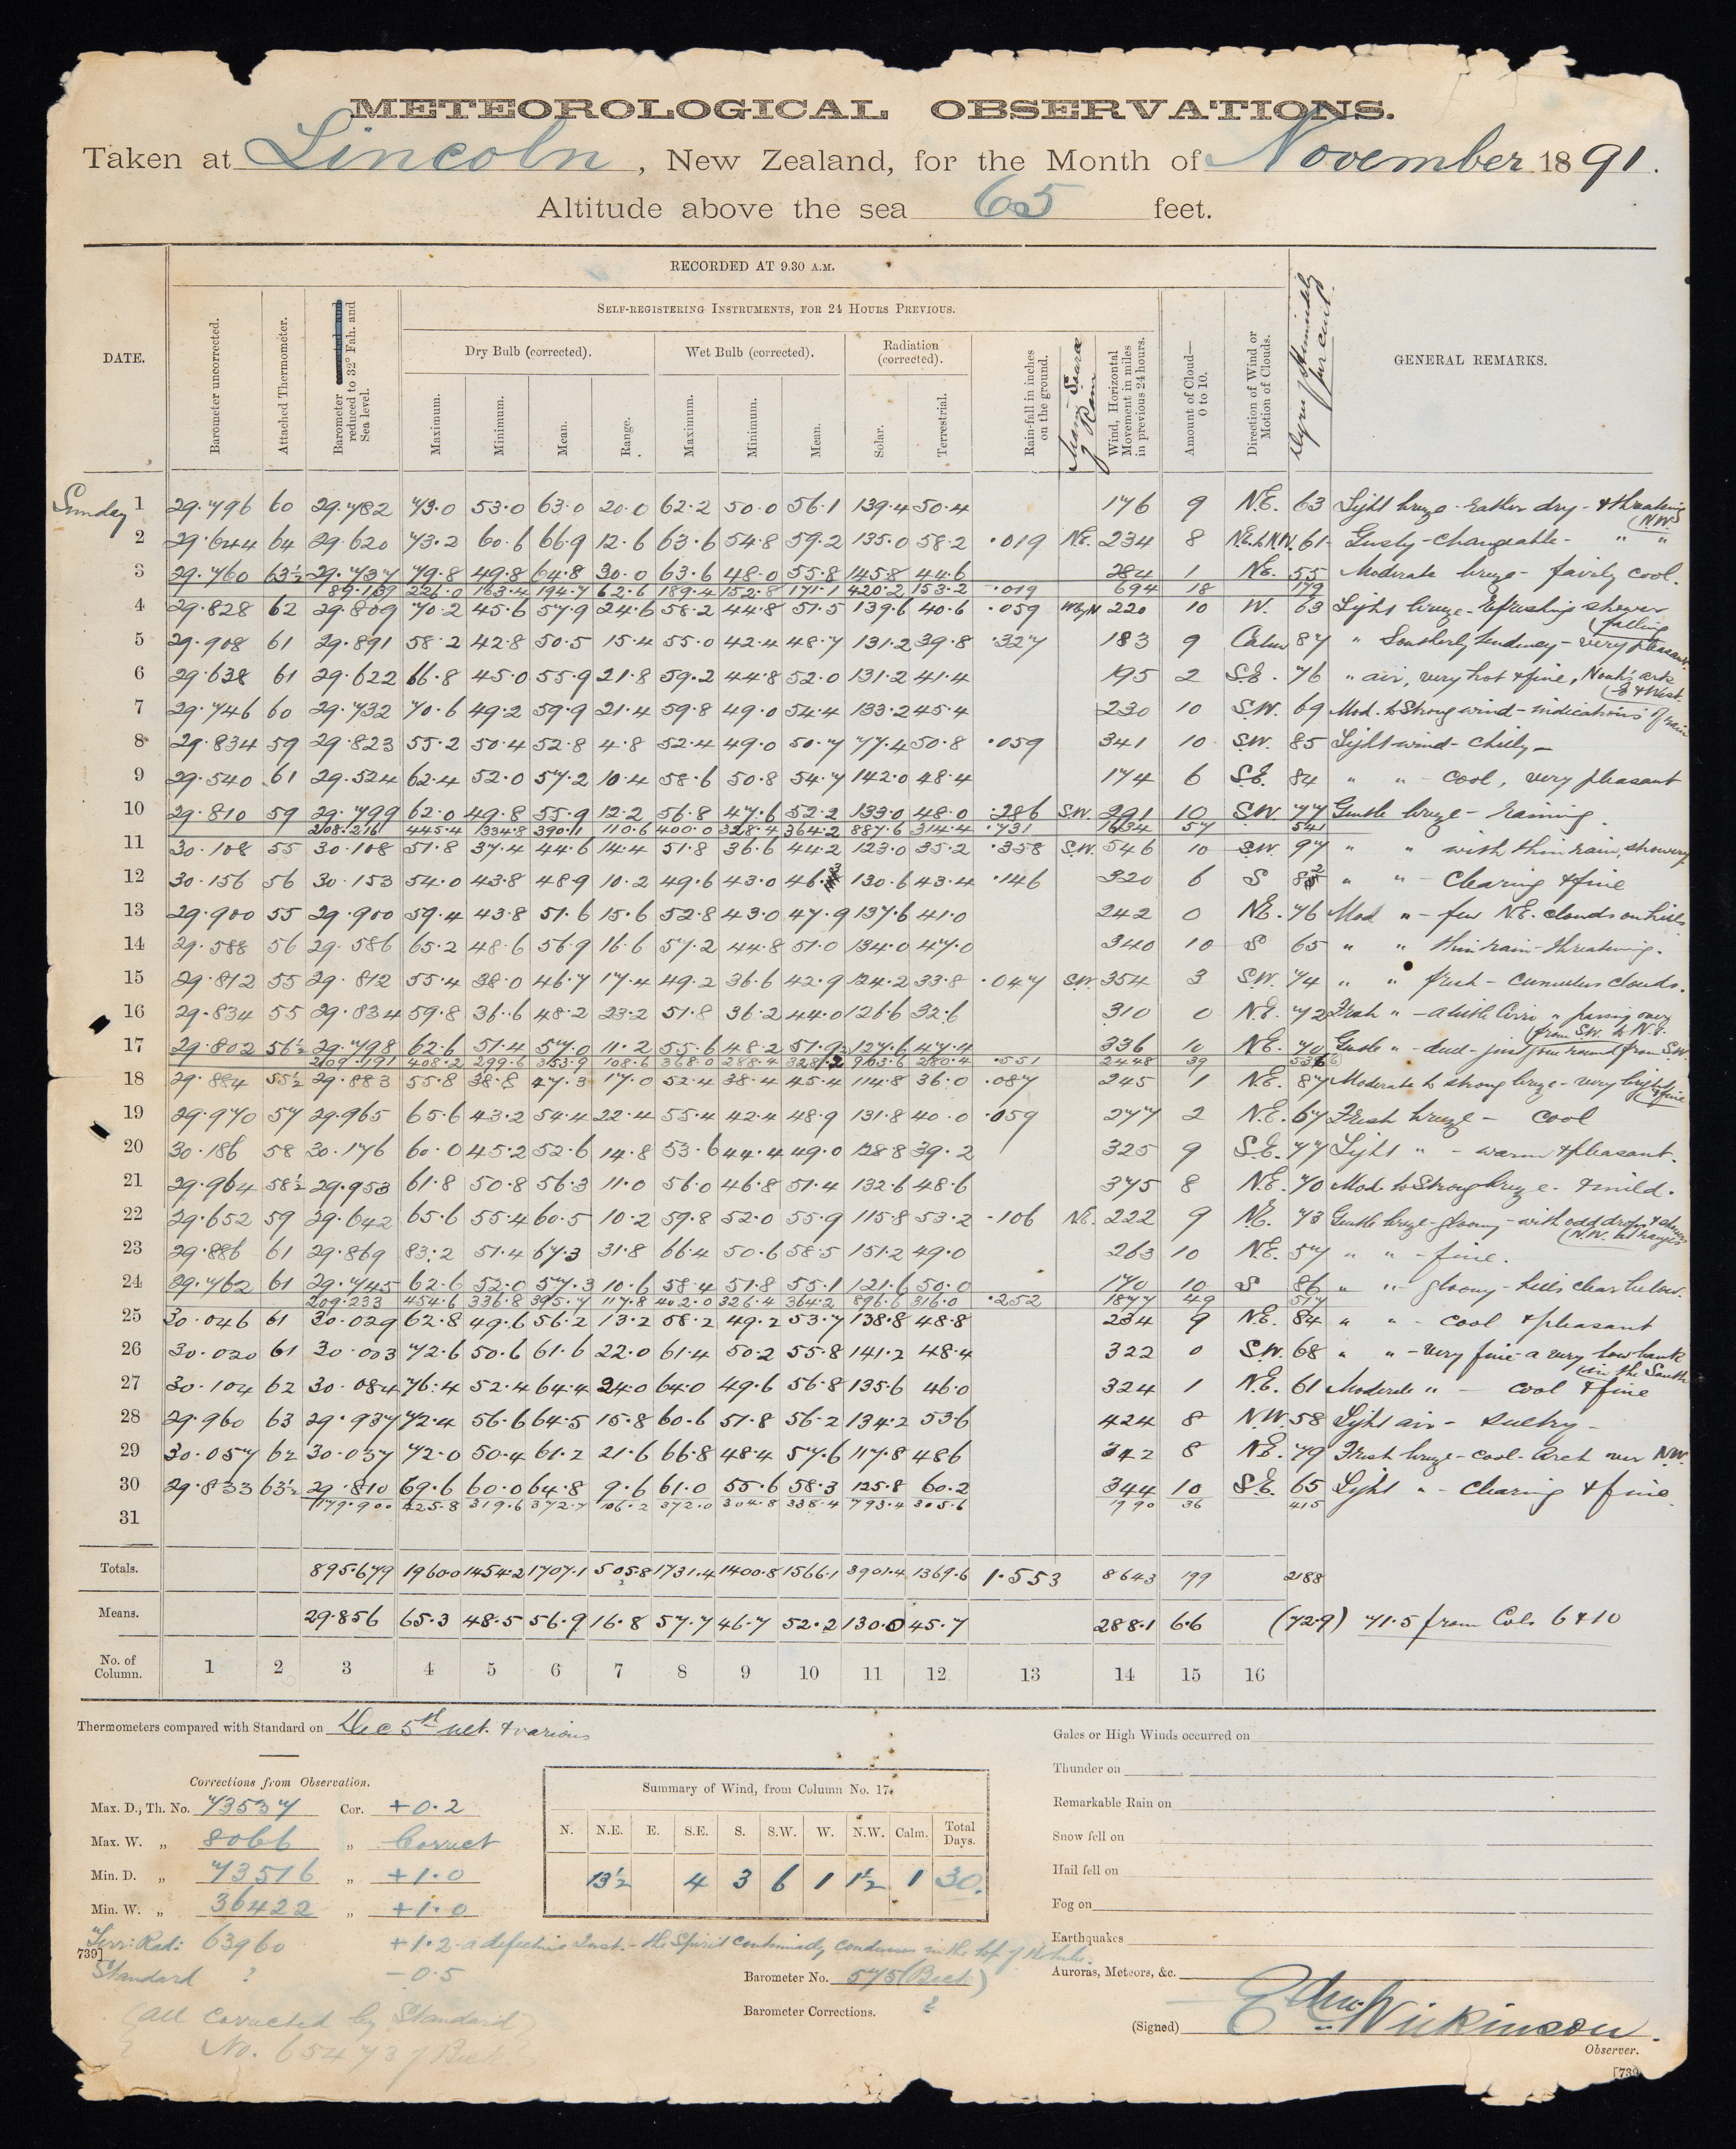 METEOROLOGICAL OBSERVATIONS.
Taken at Lincoln, New Zealand, for the Month of November 1891.
Altitude above the sea 65 feet.
RECORDED AT 9.30 A.M.
SELF-REGISTERING INSTRUMENTS, FOR 24 HOURS PREVIOUS.
Dry Bulb (corrected). Wet Bulb (corrected). Radiation (corrected).
DATE. Barometer uncorrected. Attached Thermometer. Barometer reduced to 32° Fah. and Sea level. Maximum. Minimum. Mean. Range. Maximum. Minimum. Mean. Solar. Terrestrial. Rain-fall in inches on the ground. of Rain Wind, Horizontal Movement in miles in previous 24 hours. Amount of Cloud—0 to 10. Direction of Wind or Motion of Clouds. Degree of Humidity per cent. GENERAL REMARKS.
Sunday 1 29.796 60 29.782 73.0 53.0 63.0 20.0 62.2 50.0 56.1 139.4 50.4 176 9 N.E. 63 Light breeze - rather dry - & threatening
(N.W.
2 29.644 64 29.620 73.2 60.6 66.9 12.6 63.6 54.8 59.2 135.0 58.2 .019 N.E. 234 8 N.E. to N.W. 61 Gusty - changeable - " "
3 29.760 63½ 29.737 79.8 49.8 64.8 30.0 63.6 48.0 55.8 145.8 44.6 284 1 N.E. 55 Moderate breeze - fairly cool.
89.139 226.0 163.4 194.7 62.6 189.4 152.8 171.1 420.2 153.2 .019 694 18 179
4 29.828 62 29.809 70.2 45.6 57.9 24.6 58.2 44.8 51.5 139.6 40.6 .059 WbyN 220 10 W. 63 Light breeze - Refreshing shower
falling
5 29.908 61 29.891 58.2 42.8 50.5 15.4 55.0 42.4 48.7 131.2 39.8 .327 183 9 Calm 87 " Southerly tendency - very pleasant.
6 29.638 61 29.622 66.8 45.0 55.9 21.8 59.2 44.8 52.0 131.2 41.4 195 2 S.E. 76 " air, very hot & fine, Noah's ark
E & West.
7 29.746 60 29.732 70.6 49.2 59.9 21.4 59.8 49.0 54.4 133.2 45.4 230 10 S.W. 69 Mod. to Strong wind - indications of rain
8 29.834 59 29.823 55.2 50.4 52.8 4.8 52.4 49.0 50.7 77.4 50.8 .059 341 10 S.W. 85 Light wind - Chilly -
9 29.540 61 29.524 62.4 52.0 57.2 10.4 58.6 50.8 54.7 142.0 48.4 174 6 S.E. 84 " " - cool, very pleasant
10 29.810 59 29.799 62.0 49.8 55.9 12.2 56.8 47.6 52.2 133.0 48.0 .286 S.W. 291 10 S.W. 77 Gentle breeze - raining.
208.216 445.4 334.8 390.1 110.6 400.0 328.4 364.2 887.6 314.4 .731 1634 57 541
11 30.108 55 30.108 51.8 37.4 44.6 14.4 51.8 36.6 44.2 123.0 35.2 .358 S.W. 546 10 S.W. 97 " " with thin rain, showery
12 30.156 56 30.153 54.0 43.8 48.9 10.2 49.6 43.0 46.3 130.6 43.4 .146 320 6 S 82 " " - Clearing & fine
13 29.900 55 29.900 59.4 43.8 51.6 15.6 52.8 43.0 47.9 137.6 41.0 242 0 N.E. 76 Mod " - few N.E. clouds on hills
14 29.588 56 29.586 65.2 48.6 56.9 16.6 57.2 44.8 51.0 134.0 47.0 340 10 S 65 " " thin rain - threatening.
15 29.812 55 29.812 55.4 38.0 46.7 17.4 49.2 36.6 42.9 124.2 33.8 .047 S.W. 354 3 S.W. 74 " " fresh - cumulus clouds.
16 29.834 55 29.834 59.8 36.6 48.2 23.2 51.8 36.2 44.0 126.6 32.6 310 0 N.E. 72 Fresh " - a little Cirro " passing over
from S.W. to N.E.
17 29.802 56½ 29.798 62.6 51.4 57.0 11.2 55.6 48.2 51.9 137.6 47.4 336 10 N.E. 70 Gentle " - dull - just gone round from S.W.
209.191 408.2 299.6 353.9 108.6 368.0 288.4 328.2 963.6 280.4 .551 2448 39 536
18 29.884 55½ 29.883 55.8 38.8 47.3 17.0 52.4 38.4 45.4 114.8 36.0 .087 245 1 N.E. 87 Moderate to strong breeze - very bright
& fine
19 29.970 57 29.965 65.6 43.2 54.4 22.4 55.4 42.4 48.9 131.8 40.0 .059 277 2 N.E. 67 Fresh breeze - cool
20 30.186 58 30.176 60.0 45.2 52.6 14.8 53.6 44.4 49.0 128.8 39.2 325 9 S.E. 77 Light " - warm & pleasant.
21 29.964 58½ 29.953 61.8 50.8 56.3 11.0 56.0 46.8 51.4 132.6 48.6 375 8 N.E. 70 Mod. to Strong breeze - & mild.
22 29.652 59 29.642 65.6 55.4 60.5 10.2 59.8 52.0 55.9 115.8 53.2 .106 N.E. 222 9 N.E. 73 Gentle breeze - gloomy - with odd drops
23 29.886 61 29.869 83.2 51.4 67.3 31.8 66.4 50.6 58.5 151.2 49.0 263 10 N.E. 57 " " - fine.
24 29.762 61 29.745 62.6 52.0 57.3 10.6 58.4 51.8 55.1 121.6 50.0 170 10 S 86 " " - gloomy - hills clear below.
209.233 454.6 336.8 395.7 117.8 402.0 326.4 364.2 896.6 316.0 .252 1877 49 517
25 30.046 61 30.029 62.8 49.6 56.2 13.2 58.2 49.2 53.7 138.8 48.8 234 9 N.E. 84 " " - cool & pleasant
26 30.020 61 30.003 72.6 50.6 61.6 22.0 61.4 50.2 55.8 141.2 48.4 322 0 S.W. 68 " " - very fine - a very low bank
in the South
27 30.104 62 30.084 76.4 52.4 64.4 24.0 64.0 49.6 56.8 135.6 46.0 324 1 N.E. 61 Moderate " - cool & fine
28 29.960 63 29.937 72.4 56.6 64.5 15.8 60.6 51.8 56.2 134.2 53.6 424 8 N.W. 58 Light air - Sultry -
29 30.057 62 30.037 72.0 50.4 61.2 21.6 66.8 48.4 57.6 117.8 48.6 342 8 N.E. 79 Fresh breeze - cool - Arch over N.W.
30 29.833 63½ 29.810 69.6 60.0 64.8 9.6 61.0 55.6 58.3 125.8 60.2 344 10 S.E. 65 Light " - Clearing & fine.
179.900 425.8 319.6 372.7 106.2 372.0 304.8 338.4 793.4 305.6 1990 36 415
31
Totals. 895.679 1960.0 1454.2 1707.1 505.8 1731.4 1400.8 1566.1 3901.4 1369.6 1.553 8643 199 2188
Means. 29.856 65.3 48.5 56.9 16.8 57.7 46.7 52.2 130.0 45.7 288.1 6.6 (72.9) 71.5 from Cols 6 & 10
No. of Column. 1 2 3 4 5 6 7 8 9 10 11 12 13 14 15 16
Thermometers compared with Standard on Dec 5th ult. & various
Corrections from Observation.
Max. D., Th. No. 73537 Cor. +0.2
Max. W. „ 8066 „ Correct
Min. D. „ 73516 „ +1.0
Min. W. „ 36422 „ +1.0
Terr: Rad: 63960 +1.2 - a defective Inst. - the Spirit continually condenses in the top of the tube.
739]
Standard ? -0.5
(All corrected by Standard)
No. 65473 of Beck
Summary of Wind, from Column No. 17.
N. N.E. E. S.E. S. S.W. W. N.W. Calm. Total Days.
13½ 4 3 6 1 1½ 1 30.
Barometer No. 575 (Beck)
Barometer Corrections. ?
Gales or High Winds occurred on
Thunder on
Remarkable Rain on
Snow fell on
Hail fell on
Fog on
Earthquakes
Auroras, Meteors, &c.
(Signed) Wilkinson.
Observer.
[739